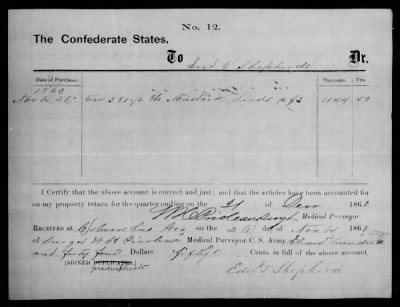 No. 12.
The Confederate States,
To Edwd T Shepherd Dr.
Date of Purchase. Dollars. Cts.
1863
Nov 26 381 1/2 lbs Mustard Seeds 1144 50
I Certify that the above account is correct and just; and that the articles have been accounted for
on my property return for the quarter ending on the 31 of Decr 1863.
W H Prioleau Surg Medical Purveyor.
Received at Columbus Geo on the 26 of Nov 1863
of Surgn W H Prioleau Medical Purveyor C. S. Army, Eleven hundred
and forty four Dollars fifty Cents, in full of the above account.
[SIGNED DUPLICATES.]
Edwd T Shepherd